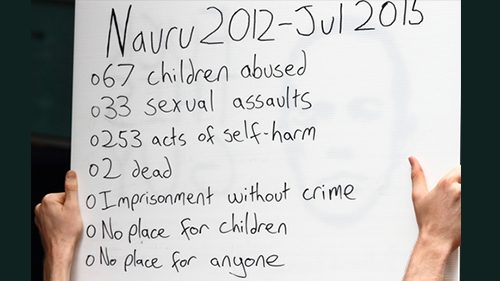 Nauru 2012-Jul 2015
o 67 children abused
o 33 sexual assaults
o 253 acts of self-harm
o 2 dead
o Imprisonment without crime
o No place for children
o No place for anyone